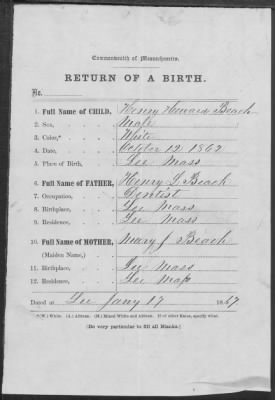 Commonwealth of Massachusetts.
RETURN OF A BIRTH.
No.
1. Full Name of CHILD, Henry Howard Beach
2. Sex, Male
3. Color,* White
4. Date, October 12 1867
5. Place of Birth, Lee Mass
6. Full Name of FATHER, Henry S Beach
7. Occupation, Dentist
8. Birthplace, Lee Mass
9. Residence, Lee Mass
10. Full Name of MOTHER, Mary J Beach
(Maiden Name,)
11. Birthplace, Lee Mass
12. Residence, Lee Mass
Dated at Lee Jany 17 1867
*(W.) White. (A.) African. (M.) Mixed White and African. If of other Races, specify what.
(Be very particular to fill all Blanks.)